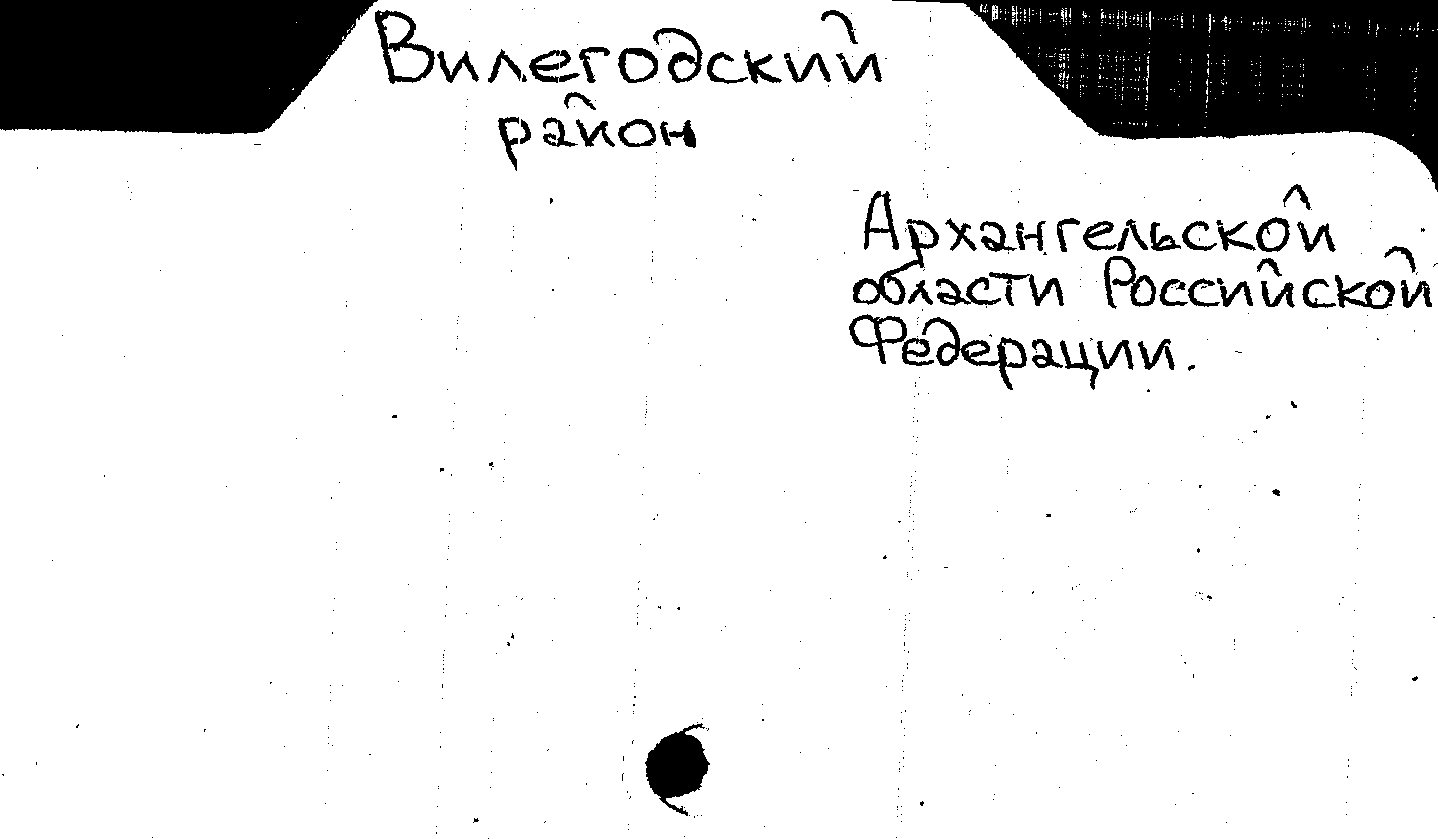 Вилегодский
район
Архангельской
области Российской
Федерации.